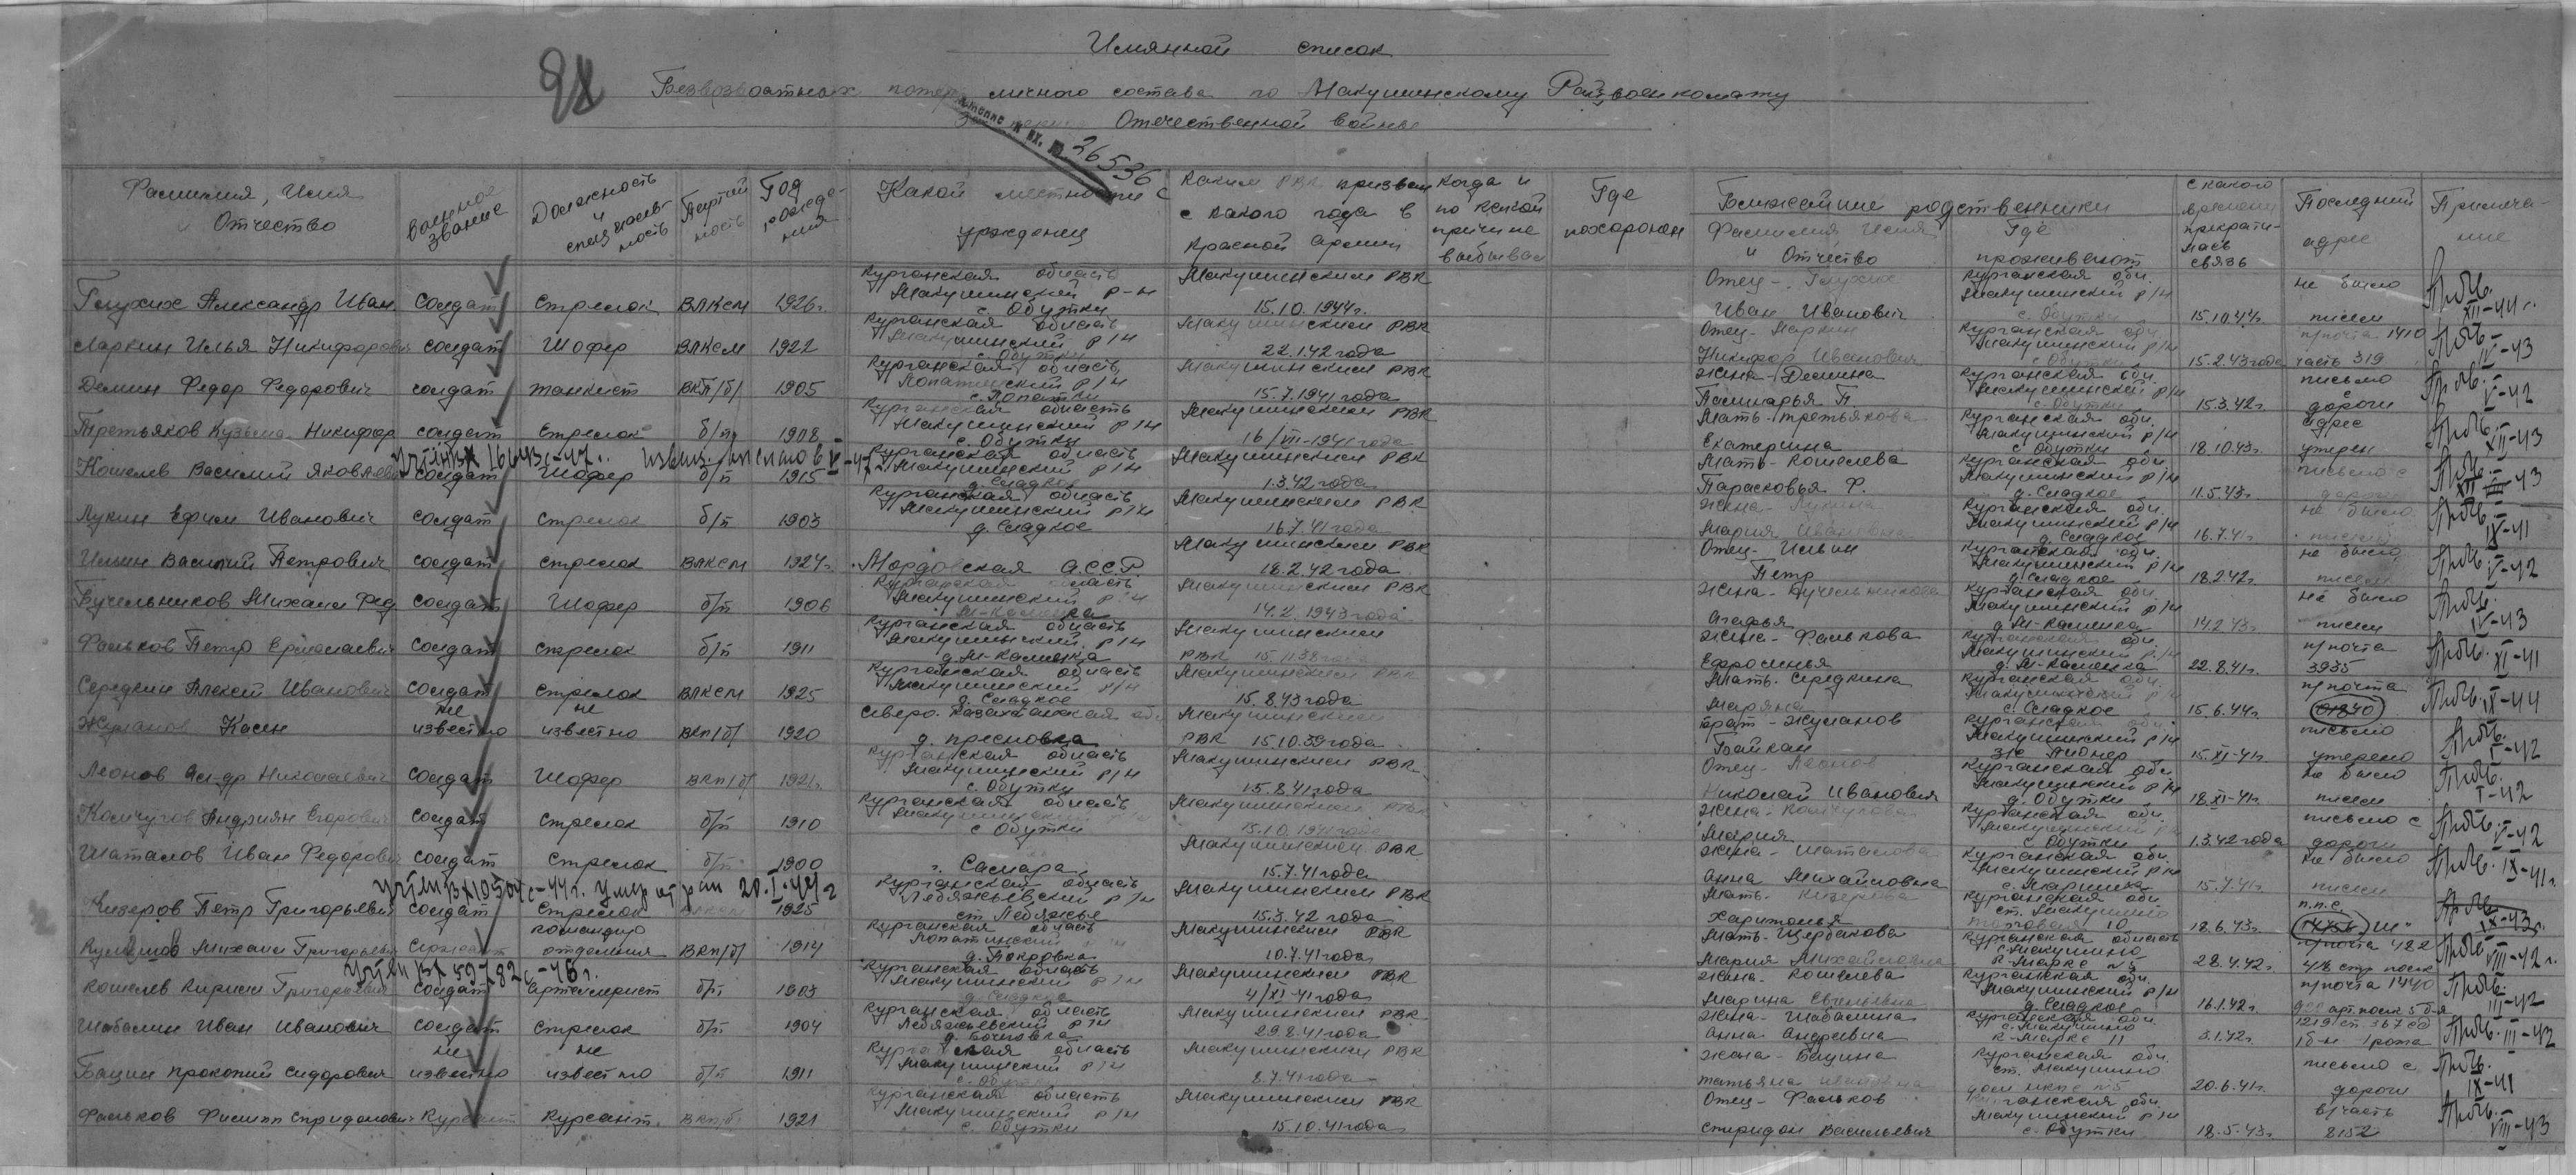 98
Имянной список
Безвозвратных потерь личного состава по Макушинскому Райвоенкомату
Отечественной войны
26536
Фамилия, Имя Отчество
военное звание
Должность и специальность
Партийность
Год рождения
Какой местности уроженец
Каким РВК призван с какого года в Красной армии
Когда и по какой причине выбывал
Где похоронен
Ближайшие родственники
Фамилия Имя и Отчество
Где проживают
с какого времени прекратилась связь
Последний адрес
Примечание
Глухих Александр Иван. солдат стрелок ВЛКСМ 1926г. Курганская область Макушинский р-н с. Обутки Макушинским РВК 15.10.1944г. Отец - Глухих Иван Иванович Курганская обл. Макушинский р/н с. Обутки 15.10.44г. не было писем Пр.бч. XII-44г.
Ларкин Илья Никифорович солдат Шофер ВЛКСМ 1922 Курганская область Макушинский р/н с. Обутки Макушинским РВК 22.1.42 года Отец - Ларкин Никифор Иванович Курганская обл. Макушинский р/н с. Обутки 15.2.43 года п/почта 1410 часть 319 Пр.бч. IV-43
Демин Федор Федорович солдат танкист ВКП/б/ 1905 Курганская область Лопатинский р/н с. Лопатки Макушинским РВК 15.7.1941 года Жена - Демина Курганская обл. Макушинский р/н с. Обутки 15.3.42г. письмо с дороги Пр.бч. V-42
Третьяков Кузьма Никифор солдат Стрелок б/п 1908 Курганская область Макушинский р/н с. Обутки Макушинским РВК 16/VII-1941 года Мать - Третьякова Екатерина Курганская обл. Макушинский р/н с. Обутки 18.10.43г. адрес утерян Пр.бч. XII-43
Кошелев Василий Яковлевич солдат Шофер б/п 1915 Курганская область Макушинский р/н д. Сладкое Макушинским РВК 1.3.42 года Мать - Кошелева Парасковья Ф. Курганская обл. Макушинский р/н д. Сладкое 11.5.43г. письмо с дороги Пр.бч. 43
Лукин Ефим Иванович солдат Стрелок б/п 1903 Курганская область Макушинский р/н д. Сладкое Макушинским РВК 16.7.41 года Жена - Лукина Мария Ивановна Курганская обл. Макушинский р/н д. Сладкое 16.7.41г. не было писем Пр.бч. IX-41
Ильин Василий Петрович солдат стрелок ВЛКСМ 1924г. Мордовская А.С.С.Р Макушинским РВК 18.2.42 года Отец - Ильин Петр Курганская обл. Макушинский р/н д. Сладкое 18.2.42г. не было писем Пр.бч. V-42
Бучельников Михаил Фед. солдат Шофер б/п 1906 Курганская область Макушинский р/н М-Каменка Макушинским РВК 14.2.1943 года Жена - Бучельникова Агафья Курганская обл. Макушинский р/н д. М-Каменка 14.2.43г. не было писем Пр.бч. IV-43
Фальков Петр Ермолаевич солдат стрелок б/п 1911 Курганская область Макушинский р/н д. М-Каменка Макушинским РВК Жена - Фалькова Ефросинья Курганская обл. Макушинский р/н д. М-Каменка 22.8.41г. п/почта 3935 Пр.бч. XI-41
Середкин Алексей Иванович солдат стрелок ВЛКСМ 1925 Курганская область Макушинский р/н д. Сладкое Макушинским РВК 15.8.43 года Мать - Середкина Марьяна Курганская обл. Макушинский р/н с. Сладкое 15.6.44г. п/почта 01840 Пр.бч. IX-44
Жуманов Касен не известно не известно ВКП/б/ 1920 Северо-Казахстанская обл. д. Пресновка Макушинским РВК 15.10.39 года брат - Жуманов Байкан Курганская обл. Макушинский р/н з/с Пионер 15.XI-41г. письмо утеряно Пр.бч. I-42
Леонов Ал-др Николаевич солдат Шофер ВКП/б/ 1921г. Курганская область Макушинский р/н с. Обутки Макушинским РВК 15.8.41 года Отец - Леонов Николай Иванович Курганская обл. Макушинский р/н д. Обутки 18.XI-41г. не было писем Пр.бч. I-42
Колчугов Андриян Егорович солдат Стрелок б/п 1910 Курганская область Макушинский р/н с Обутки Макушинским РВК 15.10.1941 года Жена - Колчугова Мария Курганская обл. Макушинский р/н с Обутки 1.3.42 года письмо с дороги Пр.бч. V-42
Шаталов Иван Федорович солдат Стрелок б/п 1900 г. Самара Макушинским РВК 15.7.41 года Жена - Шаталова Анна Михайловна Курганская обл. Макушинский р/н 15.7.41г. не было писем Пр.бч. IX-41г.
Умер от ран 20.I.44г
Кизеров Петр Григорьевич солдат Стрелок ВЛКСМ 1925 Курганская область Лебяжьевский р/н ст. Лебяжье Макушинским РВК 15.3.42 года Мать - Кизерова Харитонья Курганская обл. ст. Макушино 10 18.6.43г. п.п.с. Пр.бч. IX-43г.
Михаил Григорьевич Сержант командир отделения ВКП/б/ 1914 Курганская область Лопатинский р/н д. Покровка Макушинским РВК 10.7.41 года Мать - Щербакова Мария Михайловна Курганская область с. Макушино К-Маркс №5 28.4.42г. п/почта 422 418 стр полк Пр.бч. VIII-42г.
Кошелев Кирилл Григорьевич солдат артиллерист б/п 1903 Курганская область Макушинский р/н д. Сладкое Макушинским РВК 4/XI-41 года Жена - Кошелева Марина Евгеньевна Курганская обл. Макушинский р/н д. Сладкое 16.1.42г. п/почта 1440 арт. полк 5 б-я Пр.бч. III-42
Шабалин Иван Иванович солдат Стрелок б/п 1904 Курганская область Лебяжьевский р/н Макушинским РВК 29.8.41 года Жена - Шабалина Анна Андреевна Курганская обл. с. Макушино К-Маркс 11 3.1.42г. 1219 сп 367 сд 1 б-н 1 рота Пр.бч. III-42
Бацин Прокопий Сидорович не известно не известно б/п 1911 Курганская область Макушинский р/н с. Обутки Макушинским РВК 8.7.41 года Жена - Бацина Татьяна Ивановна Курганская обл. ст. Макушино дом НКПС №5 20.6.41г. письмо с дороги Пр.бч. IX-41
Фальков Филипп Спиридонович Курсант Курсант ВКП/б/ 1921 Курганская область Макушинский р/н с. Обутки Макушинским РВК 15.10.41 года Отец - Фальков Спиридон Васильевич Курганская обл. Макушинский р/н с. Обутки 18.5.43г. в/часть 8152 Пр.бч. VIII-43